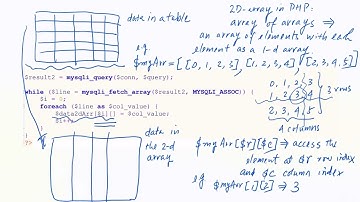 data in a table
2D-array in PHP:
array of arrays ⇒
an array of elements with each
element as a 1-d array
e.g.
$myArr = [[0, 1, 2, 3], [1, 2, 3, 4], [2, 3, 4, 5]]
$result2 = mysqli_query($conn, $query);
while ($line = mysqli_fetch_array($result2, MYSQLI_ASSOC)) {
$i = 0;
foreach ($line as $col_value) {
$data2dArr[$i][] = $col_value;
$i++;
}
}
?>
0, 1, 2, 3
1, 2, 3, 4
2, 3, 4, 5
3 rows
4 columns
data in
the 2-d
array
$myArr[$r][$c] ⇒ access the
element at $r row index
and $c column index
eg $myArr[1][2] ⇒ 3